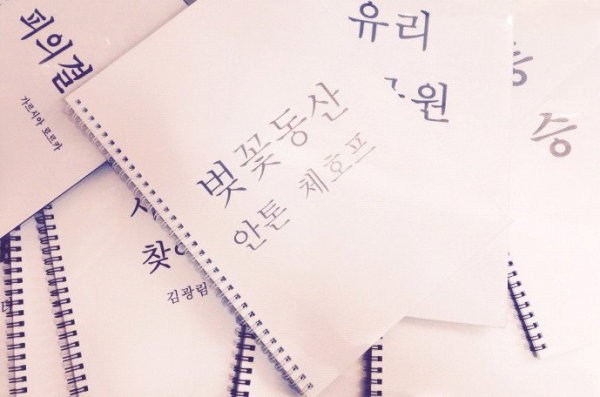 피의결
가르시아 로르카
벚꽃동산
안톤 체호프
유리
원
승
찾
김광림